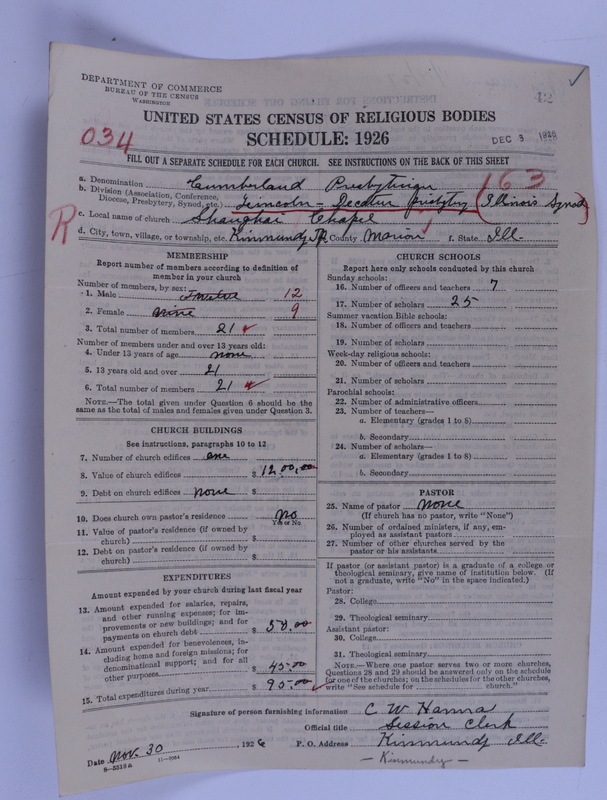 DEPARTMENT OF COMMERCE
BUREAU OF THE CENSUS
WASHINGTON
42
UNITED STATES CENSUS OF RELIGIOUS BODIES
SCHEDULE: 1926
DEC 3 1926
034
FILL OUT A SEPARATE SCHEDULE FOR EACH CHURCH. SEE INSTRUCTIONS ON THE BACK OF THIS SHEET
163
a. Denomination Cumberland Presbyterian
b. Division (Association, Conference, Diocese, Presbytery, Synod, etc.) Lincoln - Decatur presbytry (Illinois Synod)
R
c. Local name of church Shanghai Chapel
d. City, town, village, or township, etc. Kinmundy TP. County Marion f. State Ill.
MEMBERSHIP
Report number of members according to definition of member in your church
Number of members, by sex:
1. Male Twelve 12
2. Female nine 9
3. Total number of members 21
Number of members under and over 13 years old:
4. Under 13 years of age none
5. 13 years old and over 21
6. Total number of members 21
NOTE.—The total given under Question 6 should be the same as the total of males and females given under Question 3.
CHURCH BUILDINGS
See instructions, paragraphs 10 to 12
7. Number of church edifices one
8. Value of church edifices $ 1200.00
9. Debt on church edifices none $
10. Does church own pastor's residence No
Yes or No
11. Value of pastor's residence (if owned by church) $
12. Debt on pastor's residence (if owned by church) $
EXPENDITURES
Amount expended by your church during last fiscal year
13. Amount expended for salaries, repairs, and other running expenses; for improvements or new buildings; and for payments on church debt $ 50.00
14. Amount expended for benevolences, including home and foreign missions; for denominational support; and for all other purposes $ 45.00
15. Total expenditures during year $ 95.00
CHURCH SCHOOLS
Report here only schools conducted by this church
Sunday schools:
16. Number of officers and teachers 7
17. Number of scholars 25
Summer vacation Bible schools:
18. Number of officers and teachers
19. Number of scholars
Week-day religious schools:
20. Number of officers and teachers
21. Number of scholars
Parochial schools:
22. Number of administrative officers
23. Number of teachers—
a. Elementary (grades 1 to 8)
b. Secondary
24. Number of scholars—
a. Elementary (grades 1 to 8)
b. Secondary
PASTOR
25. Name of pastor None
(If church has no pastor, write "None")
26. Number of ordained ministers, if any, employed as assistant pastors
27. Number of other churches served by the pastor or his assistants
If pastor (or assistant pastor) is a graduate of a college or theological seminary, give name of institution below. (If not a graduate, write "No" in the space indicated.)
Pastor:
28. College
29. Theological seminary
Assistant pastor:
30. College
31. Theological seminary
NOTE.—Where one pastor serves two or more churches, Questions 28 and 29 should be answered only on the schedule for one of the churches; on the schedules for the other churches, write "See schedule for church."
Signature of person furnishing information C W Hanna
Official title Session Clerk
Date Nov. 30, 1926 P. O. Address Kinmundy Ill.
8-5319a 11-9984
- Kinmundy -